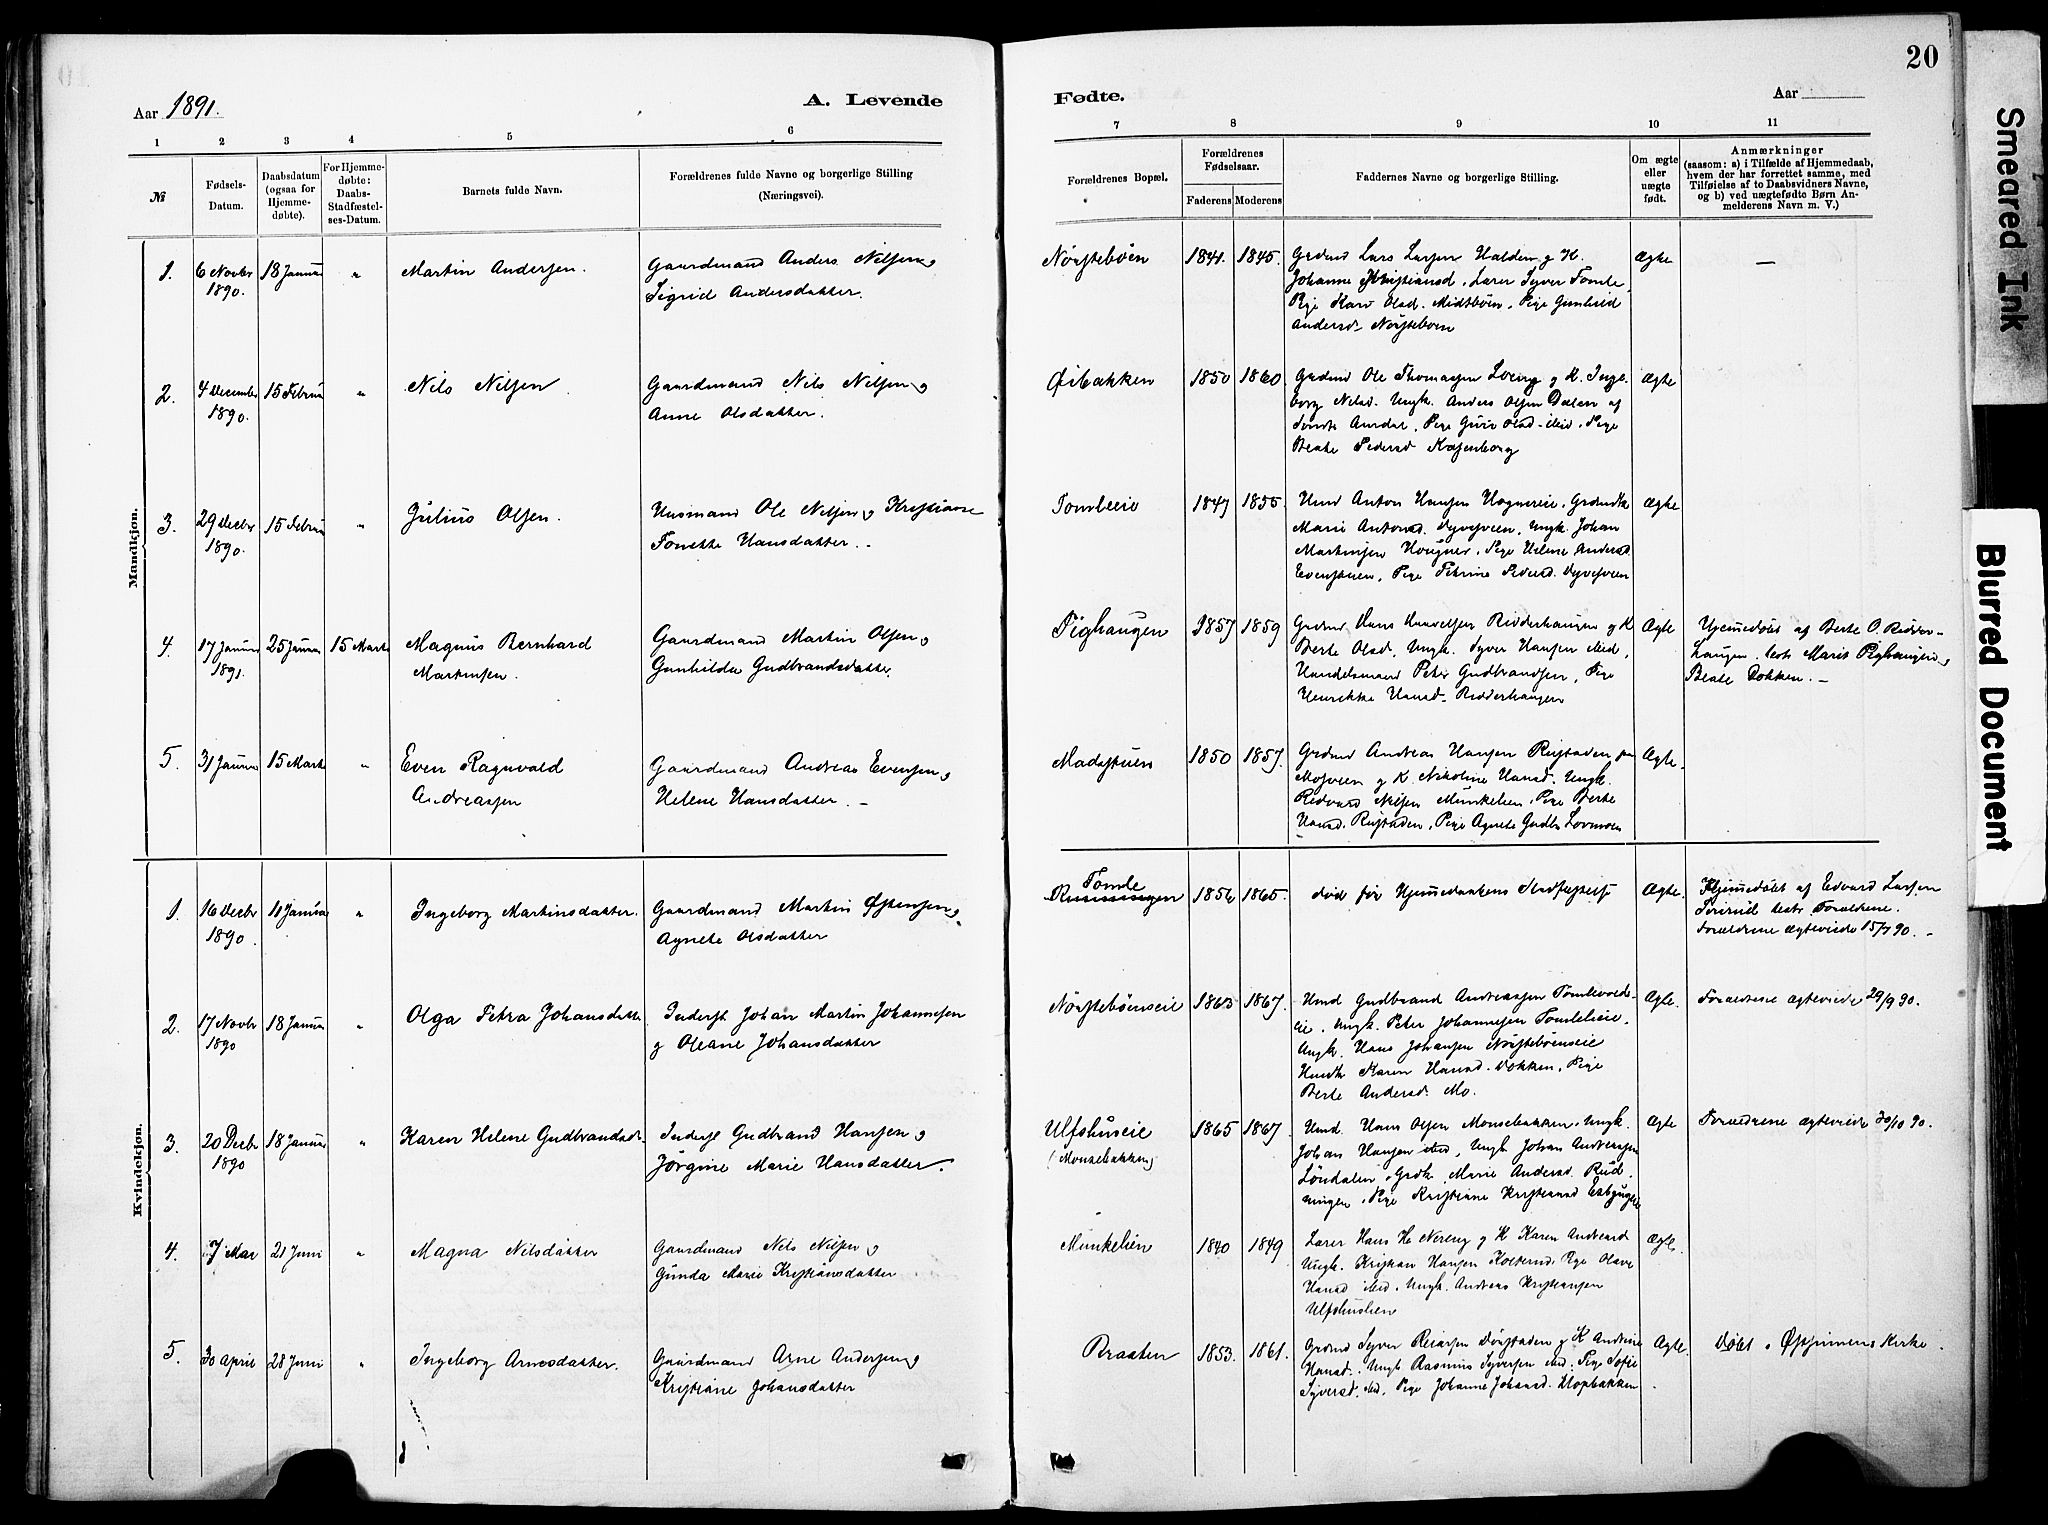 20
Aar 1891.
A. Levende
Fødte.
Aar
1 2 3 4 5 6 7 8 9 10 11
№
Fødsels-Datum.
Daabsdatum (ogsaa for Hjemme-døbte).
For Hjemme-døbte: Daabs-Stadfæstel-ses-Datum.
Barnets fulde Navn.
Forældrenes fulde Navne og borgerlige Stilling
(Næringsvei).
Forældrenes Bopæl.
Forældrenes Fødselsaar.
Faderens Moderens
Faddernes Navne og borgerlige Stilling.
Om ægte eller uægte født.
Anmærkninger
(saasom: a) i Tilfælde af Hjemmedaab,
hvem der har forrettet samme, med
Tilføielse af to Daabsvidners Navne,
og b) ved uægtefødte Børn An-
melderens Navn m. V.)
Mandkjøn.
1. 6 Novbr 1890. 18 Januar " Martin Andersen. Gaardmand Anders Nilsen og
Sigrid Andersdatter.
Nørstebøen 1841. 1845. Grdmd Lars Larsen Halden og K.
Johanne Kristiansd. Lærer Syver Tomle,
Pige Kari Olsd. Midtbøen, Pige Gunhild
Andersd. Nørstebøen
Ægte —
2. 4 December 1890. 15 Februar " Nils Nilsen. Gaardmand Nils Nilsen og
Anne Olsdatter.
Øibakken 1850 1860. Grdmd Ole Thomassen Loeng og K. Inge-
borg Nilsd. Ungk. Anders Olsen Dalen af
Søndre Aurdal, Pige Guri Olsd. ibid. Pige
Beate Pedersd
Ægte
3. 29 Decbr 1890. 15 Februar " Julius Olsen. Husmand Ole Nilsen og Kristiane
Tonette Hansdatter.
Tomleeie 1847 1855. Hmd Anton Hansen
Marie Antonsd. Ungk. Johan
Martinsen Pige Helene Andersd.
Evenstuen, Pige Pedersd.
Ægte
4. 17 Januar 1891. 25 Januar 15 Marts Magnus Bernhard
Martinsen.
Gaardmand Martin Olsen og
Gunhilde Gudbrandsdatter.
Pighaugen 1857 1859 Grdmd Hans Haavelsen Ridderhaugen og K
Berte Olsd, Ungk. Syver Hansen ibid,
Handelsmand Peter Gudbrandsen, Pige
Henrikke Hansd. Ridderhaugen
Ægte Hjemmedøbt af Berte O. Ridder-
haugen. test. Marit Pighaugen og
Beate Dokken. —
5. 31 Januar 15 Marts " Even Ragnvald
Andreassen
Gaardmand Andreas Evensen og
Helene Hansdatter. —
Madsstuen 1850 1857. Grdmd Andreas Hansen Rustaden
og K Nikoline Hansd. Ungk.
Nilsen Munkelien, Pige Berte
Hansd. Rustaden, Pige Agnete Gudbr.
Ægte.
Kvindekjøn.
1. 16 Decbr 1890. 11 Januar " Ingeborg Martinsdatter. Gaardmand Martin Østensen og
Agnete Olsdatter
Tomle
1856 1865. død før Hjemmedaabens Stadfæstelse
Ægte. Hjemmedøbt af Edvard Larsen
test. Forældrene.
Forældrene ægteviede 15/7 90. —
2. 17 Novbr 1890 18 Januar " Olga Petra Johansdatter Inderst Johan Martin Johannesen
og Oleane Johansdatter
Nørstebøenseie 1863 1867. Hmd Gudbrand Andreassen Tomlevolds-
eie. Ungk. Peter Johannesen Tomleeie.
Ungk. Hans Johansen Nørstebøenseie
Hmdk Karen Hansd. Dokken, Pige
Berte Andersd. Mo.
Ægte. Forældrene ægteviede 29/9 90.
3. 20 Decbr 1890 18 Januar " Karen Helene Gudbrandsdtr. Inderst Gudbrand Hansen og
Jørgine Marie Hansdatter.
Ulfshuseie
(Monsebakken)
1865 1867. Hmd. Hans Olsen Monsebakken, Ungk.
Johan Hansen ibid, Ungk Johan Andreassen
Løndalen, Grdk. Marie Andersd. Rud-
ningen, Pige Kristiane Kristiansd
Ægte Forældrene ægteviede 30/10 90.
4. 7 Mar 21 Juni " Magna Nilsdatter Gaardmand Nils Nilsen og
Gunda Marie Kristiansdatter.
Munkelien 1840 1849 Lærer Hans H. Nereng og K Karen Andreasd
Ungk. Kristian Hansen Pige Olava
Hansd ibid. Ungk. Andreas Kristiansen
Ulfshuslien
Ægte.
5. 30 April 28 Juni " Ingeborg Arnesdatter. Gaardmand Arne Andersen og
Kristiane Johansdatter
Braaten 1853. 1861. Grdmd Syver Reiersen og K Andrine
Hansd. Ungk Rasmus Syversen ibid. Pige Sofie
Syversd. ibid, Pige Johanne Johansd. Klopbakken
Ægte. Døbt i Østsinnens Kirke.
Smeared Ink
Blurred Document